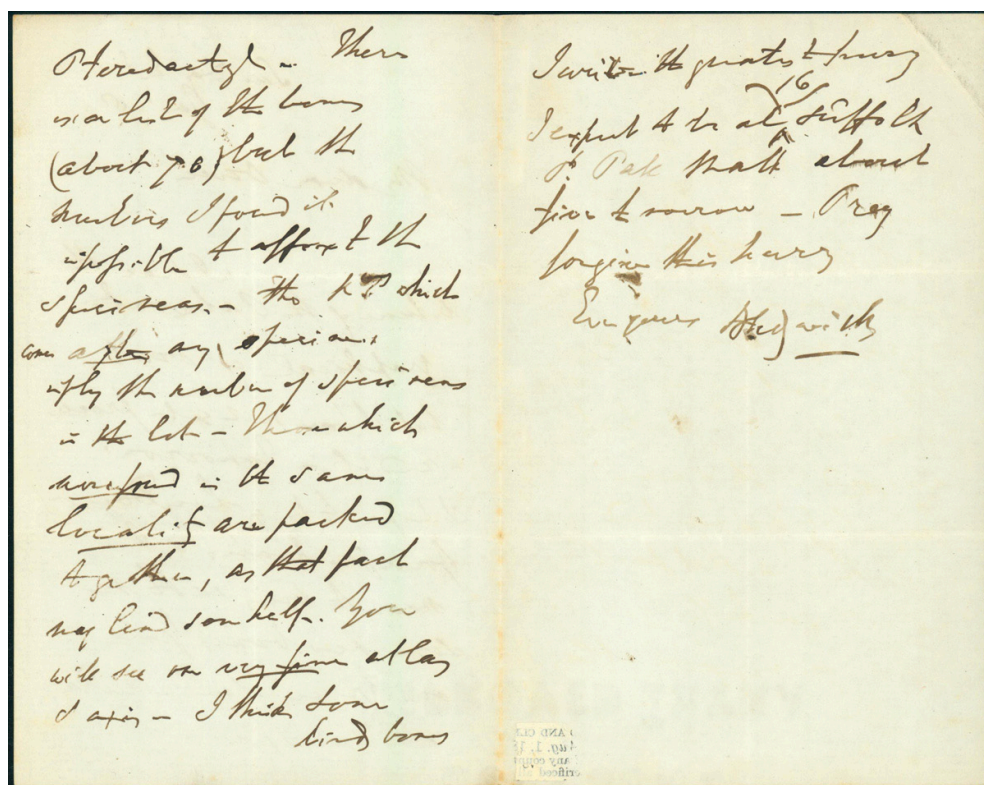 Pterodactyl – There
is a list of the bones
(about 70) but the
numbers I found it
impossible to affix to the
specimens. – The No which
comes after any specimen
imply the number of specimens
in the lot – Those which
were found in the same
locality are packed
together, as that fact
may lend some help. You
will see one very fine atlas
& axis – I think some
bones
I write in the greatest hurry
I expect to be at 16 Suffolk
St. Pall Mall about
five tomorrow – Pray
forgive this hurry
Ever yours A Sedgwick